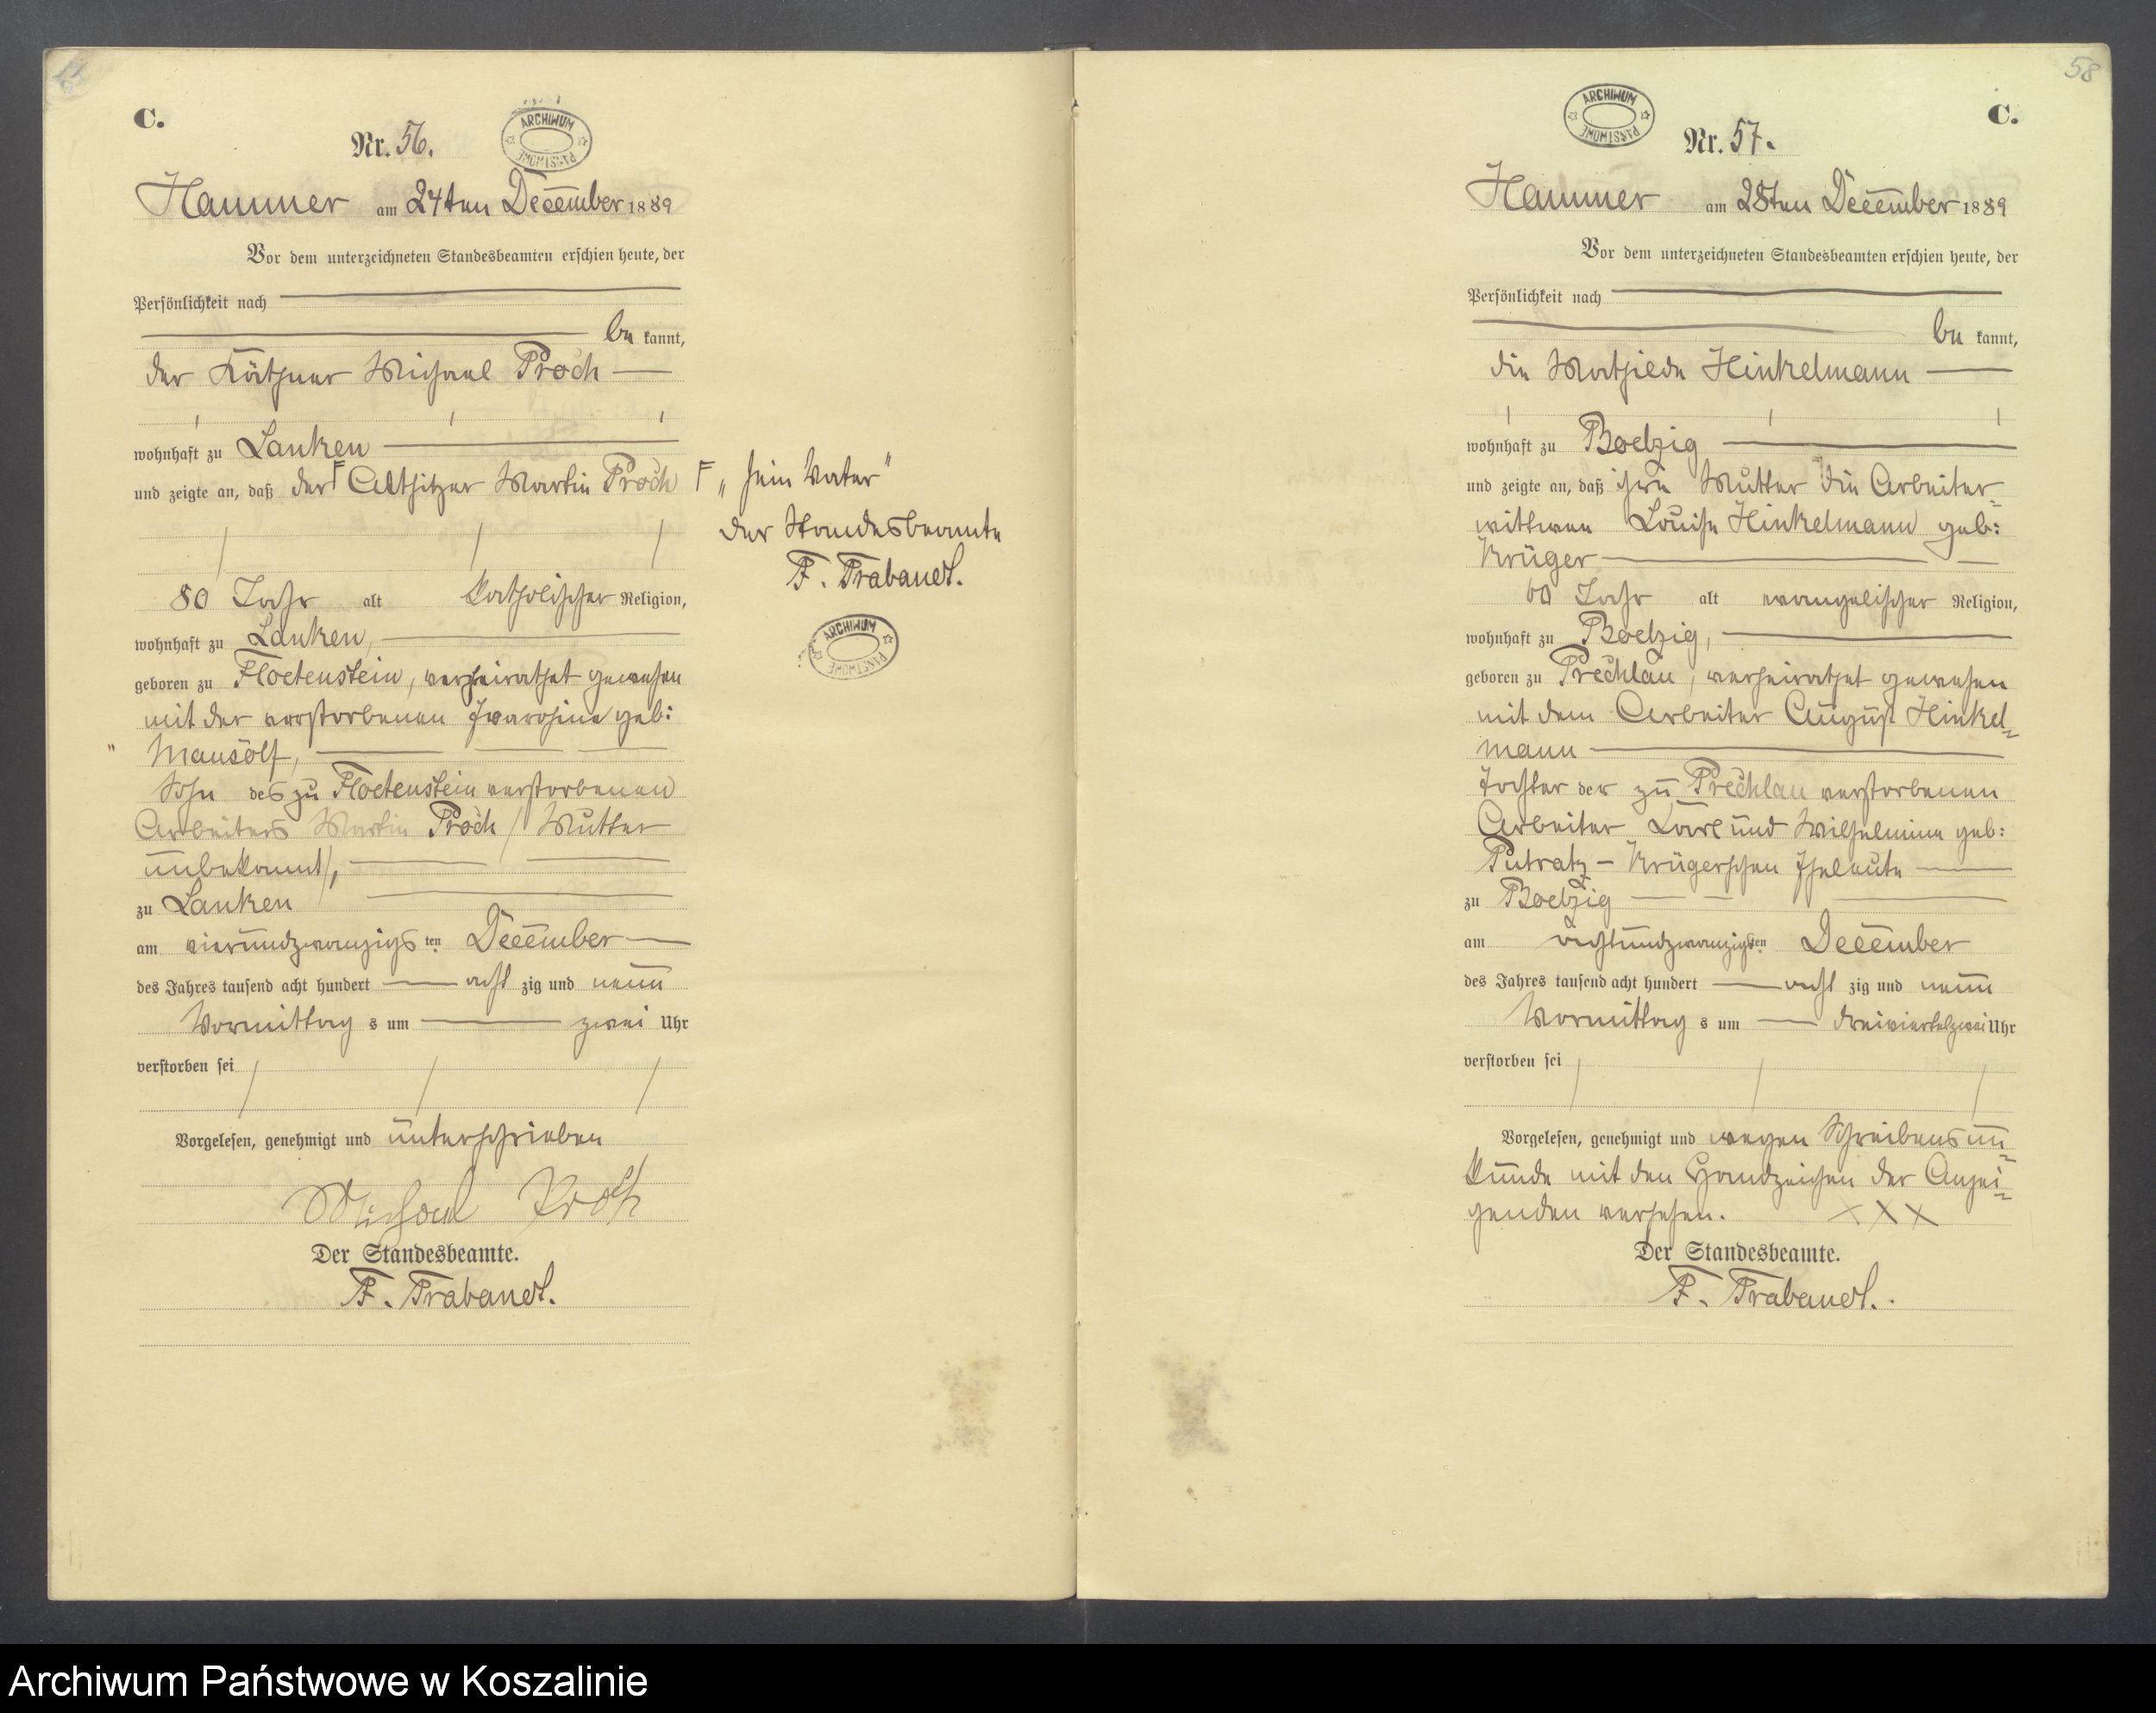 C.
Nr. 56.
ARCHIWUM PAŃSTWOWE
Hammer am 24ten December 1889
Vor dem unterzeichneten Standesbeamten erschien heute, der
Persönlichkeit nach
be kannt,
der Käthner Michael Proch
wohnhaft zu Lanken
und zeigte an, daß der F Altsitzer Martin Proch
80 Jahr alt katholischer Religion,
wohnhaft zu Lanken,
geboren zu Floetenstein, verheirathet gewesen
mit der verstorbenen geb:
Mausolf,
Sohn des zu Floetenstein verstorbenen
Arbeiters Martin Proch / Mutter
unbekannt /,
zu Lanken
am vierundzwanzigs ten December
des Jahres tausend acht hundert acht zig und neun
Vormittag s um zwei Uhr
verstorben sei
Vorgelesen, genehmigt und unterschrieben
Michael Proch
Der Standesbeamte.
F. Trabandt.
F „sein Vater"
Der Standesbeamte
F. Trabandt.
ARCHIWUM PAŃSTWOWE
58
C.
ARCHIWUM PAŃSTWOWE
Nr. 57.
Hammer am 28ten December 1889
Vor dem unterzeichneten Standesbeamten erschien heute, der
Persönlichkeit nach
be kannt,
die Mathilde Hinkelmann
wohnhaft zu Boelzig
und zeigte an, daß ihre Mutter die Arbeiter-
wittwe Louise Hinkelmann geb:
Krüger
60 Jahr alt evangelischer Religion,
wohnhaft zu Boelzig,
geboren zu Prechlau, verheirathet gewesen
mit dem Arbeiter August Hinkel-
mann
Tochter der zu Prechlau verstorbenen
Arbeiter Karl und Wilhelmine geb:
Putratz - Krügerschen Eheleute
zu Boelzig
am achtundzwanzigsten December
des Jahres tausend acht hundert acht zig und neun
Vormittag s um dreiviertelzwei Uhr
verstorben sei
Vorgelesen, genehmigt und wegen Schreibensun-
kunde mit den Handzeichen der Anzei-
genden versehen. XXX
Der Standesbeamte.
F. Trabandt.
Archiwum Państwowe w Koszalinie